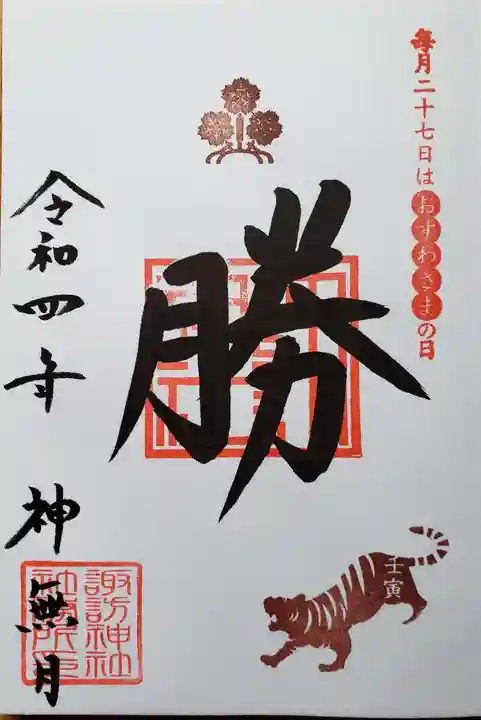 毎月二十七日はおすわさまの日
勝
壬寅
令和四年 神無月
諏訪神社
社務所印